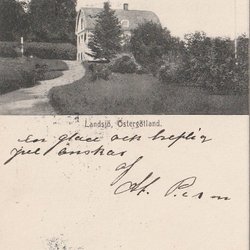 Landsjö, Östergötland.
en glace och hyflig
jul önskas
af